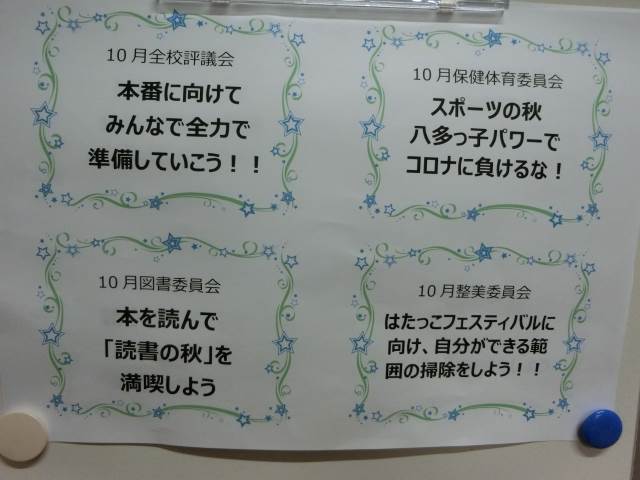 10月全校評議会
本番に向けて
みんなで全力で
準備していこう！！
10月保健体育委員会
スポーツの秋
八多っ子パワーで
コロナに負けるな！
10月図書委員会
本を読んで
「読書の秋」を
満喫しよう
10月整美委員会
はたっこフェスティバルに
向け、自分ができる範
囲の掃除をしよう！！